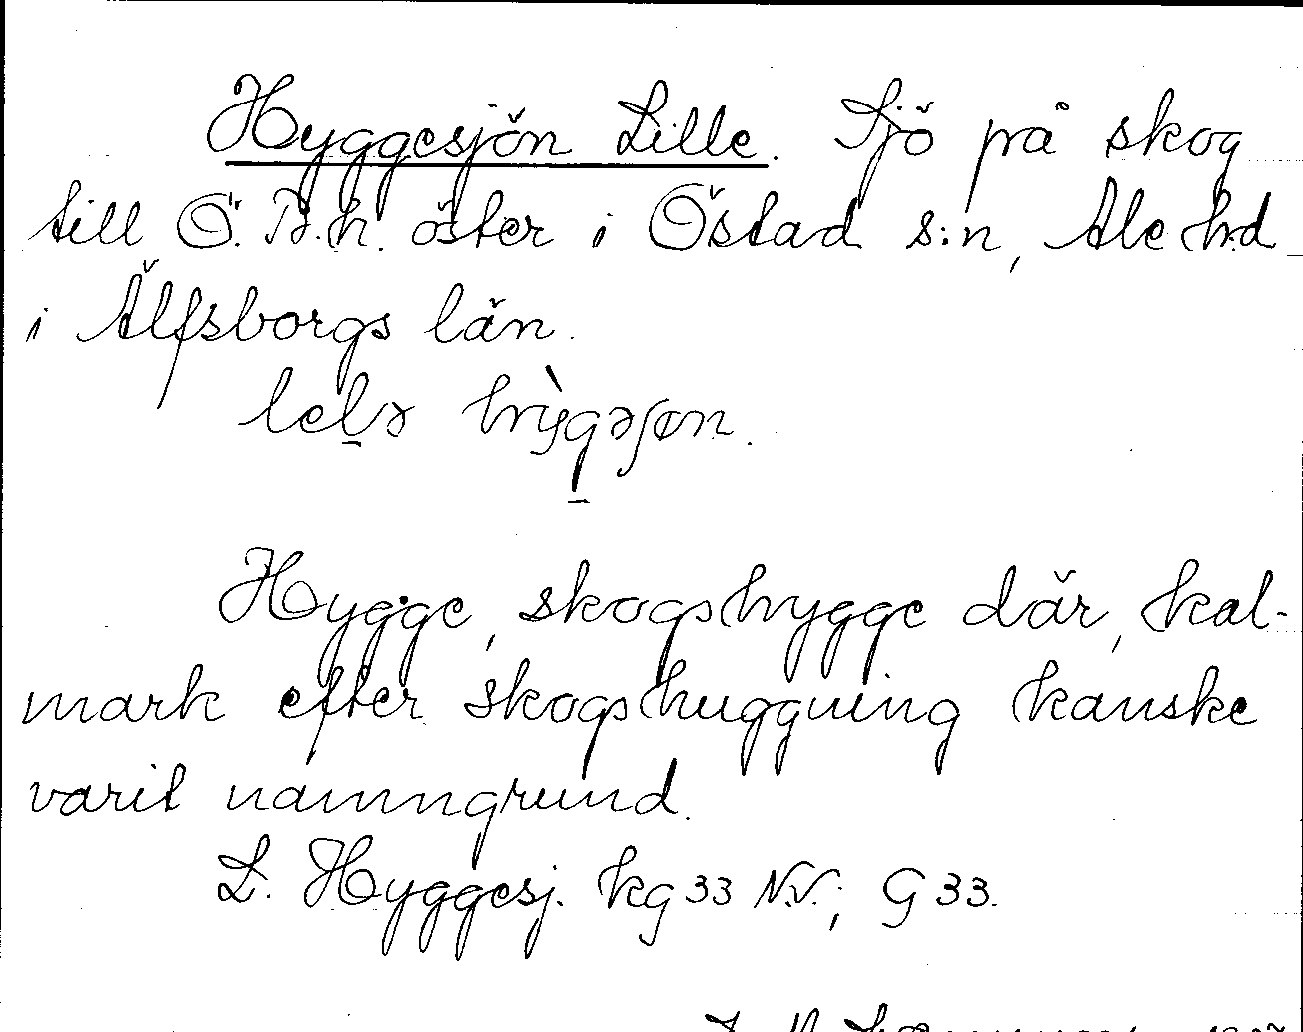 Hyggesjön Lille. Sjö på skog
till Ö. B.h. öster i Östad s:n, Ale hd
i Älfsborgs län.
lelə hỳgəʃøn.
Hygge, skogshygge där, kal-
mark efter skogshuggning kanske
varit namngrund.
L. Hyggesj. kg 33 N.V.; G 33.